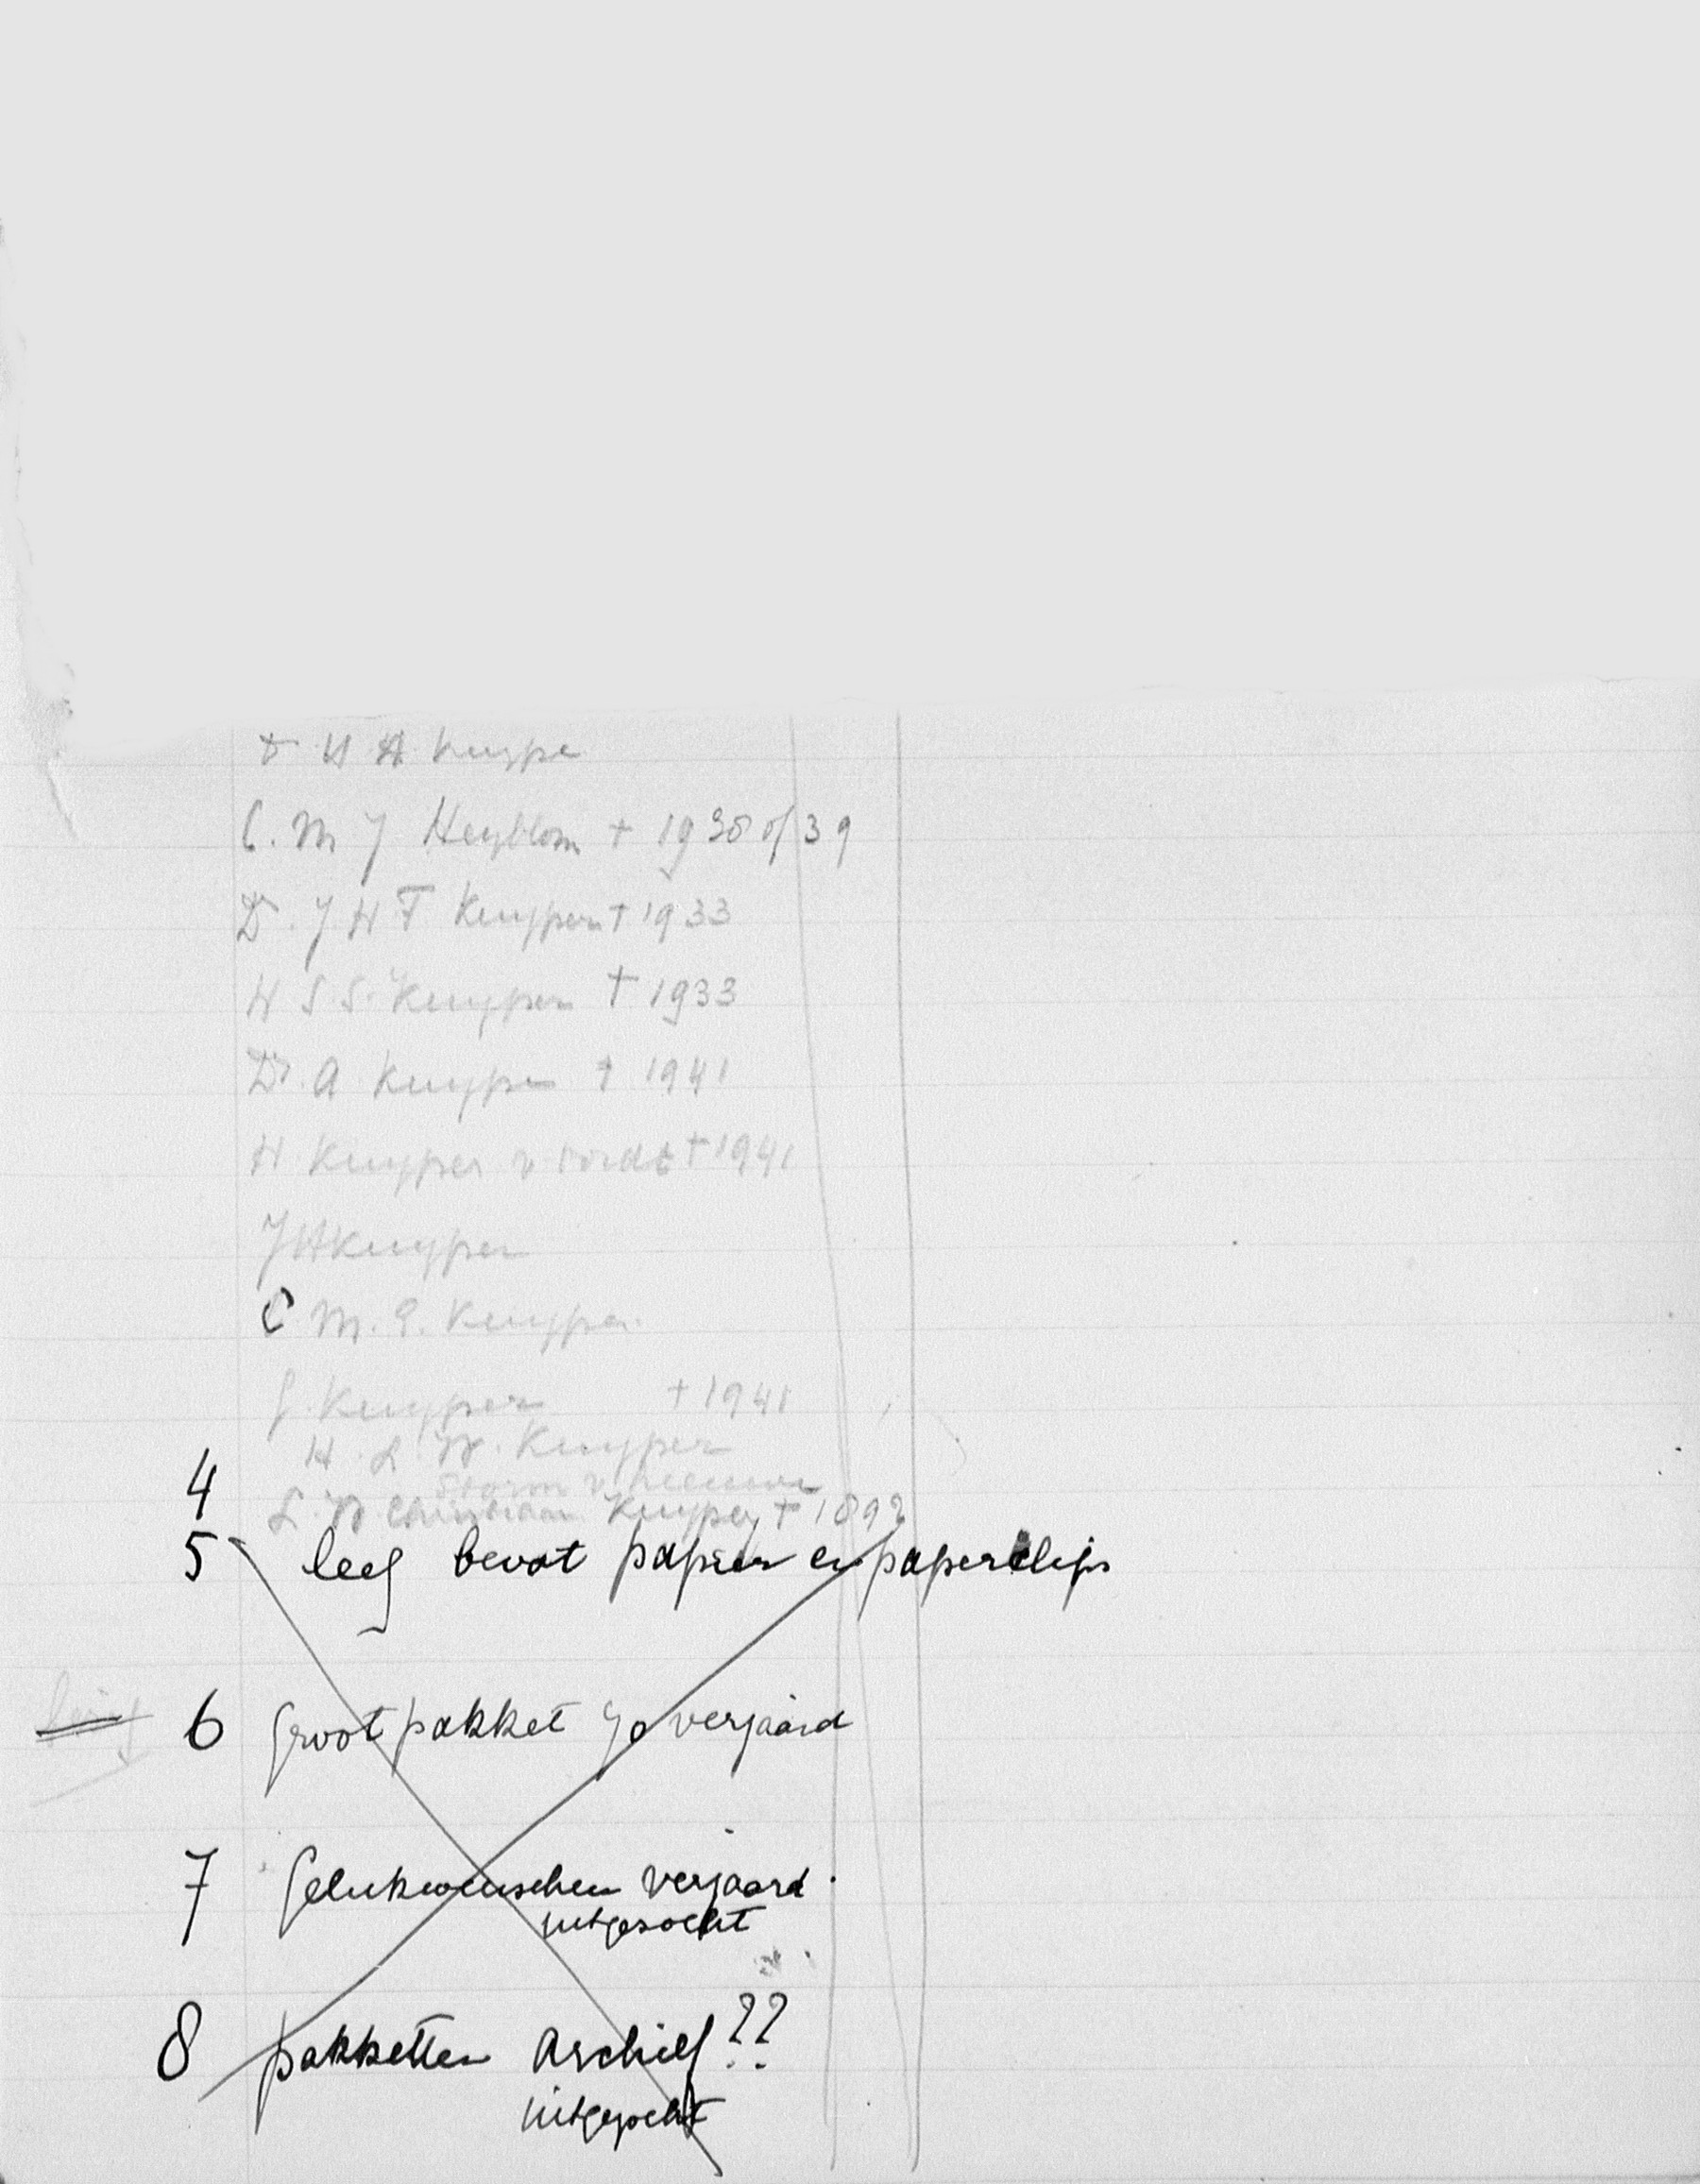 Dr H H Kuype
C. M J Heyblom † 1938 of 39
Dr. J H F Kuyper † 1933
H S S. Kuyper † 1933
Dr. A Kuyper † 1941
H Kuyper v. Oordt † 1941
J H Kuyper
C M. E. Kuyper
G. Kuyper † 1941
H. L. W. Kuyper
Storm v Leeuwen
4 L. W Christiaan Kuyper † 1892
5 leeg bevat papier en paperclips
6 Groot pakket 70 verjaard
7 Gelukwenschen verjaard.
uitgezocht
8 pakketten Archief ??
uitgezocht